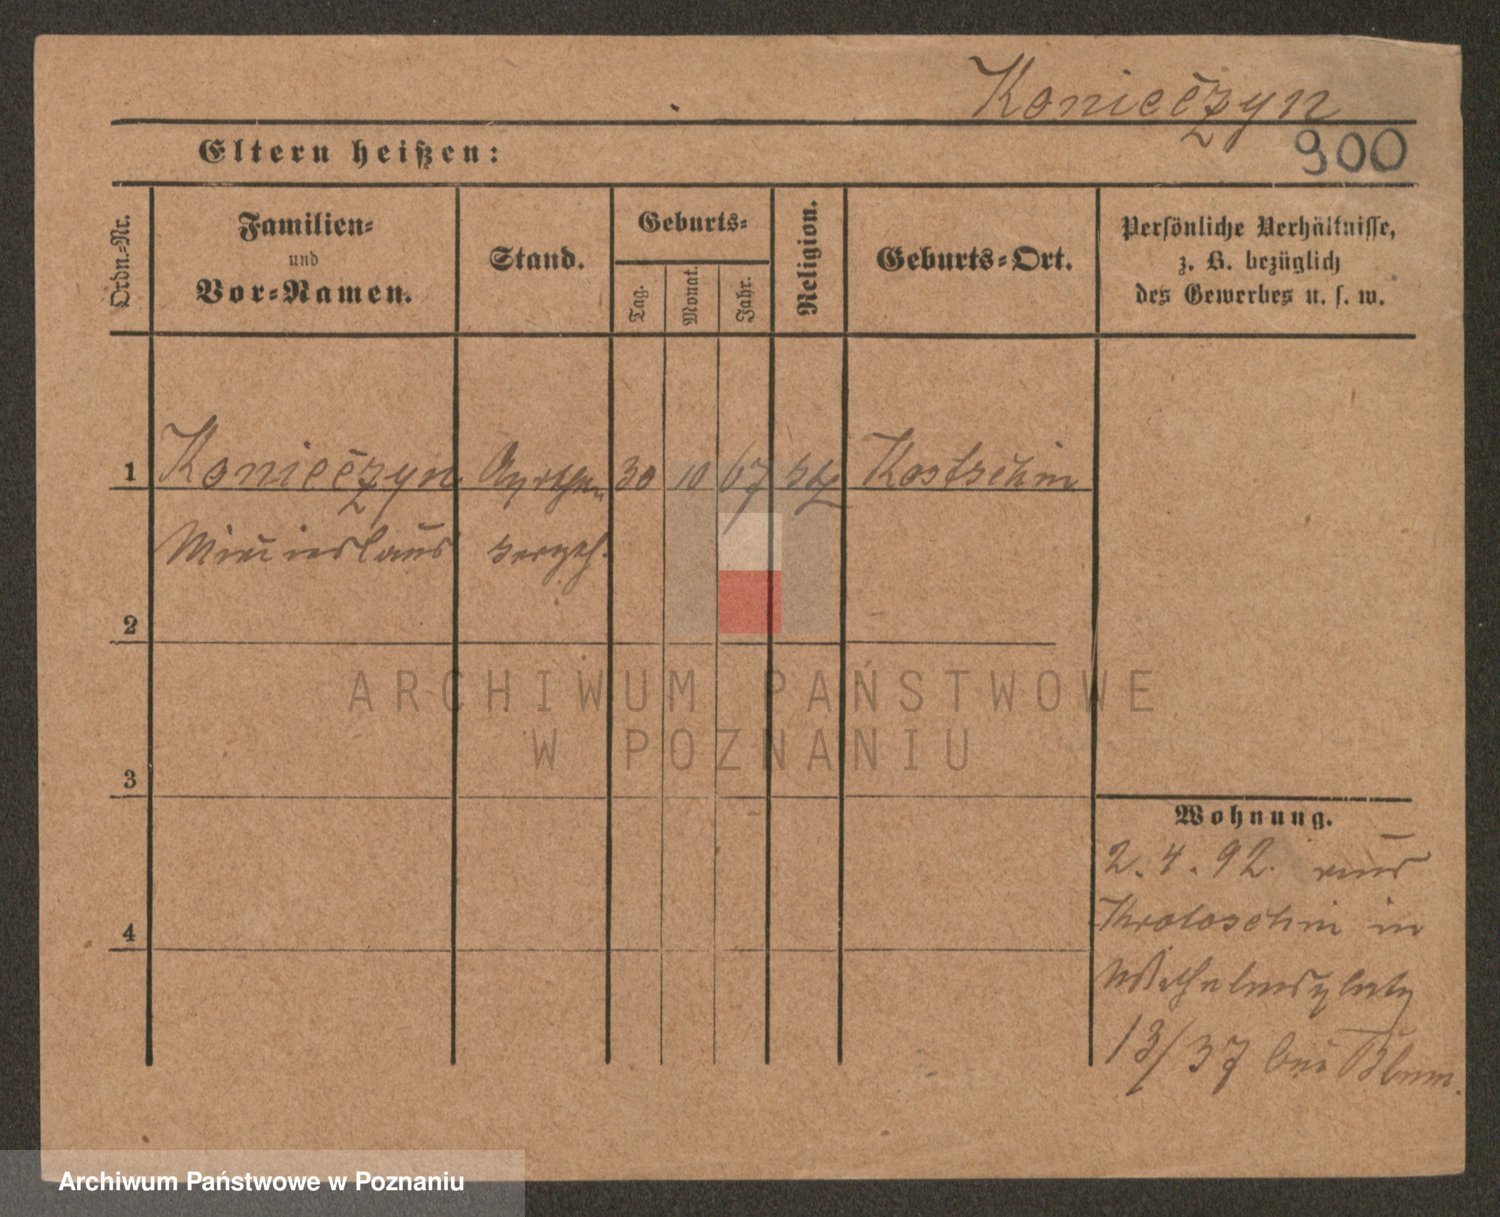 Konieczyn
900
Eltern heißen:
Ordn.-Nr.
Familien-
und
Vor-Namen.
Stand.
Geburts-
Tag.
Monat.
Jahr.
Religion.
Geburts-Ort.
Persönliche Verhältnisse,
z. B. bezüglich
des Gewerbes u. s. w.
1 Konieczyn 30 10 67 Kostschin
2
3
4
Wohnung.
2.4.92. aus
Krotoschin in
Wilhelmsplatz
13/37 bei
ARCHIWUM PAŃSTWOWE
W POZNANIU
Archiwum Państwowe w Poznaniu